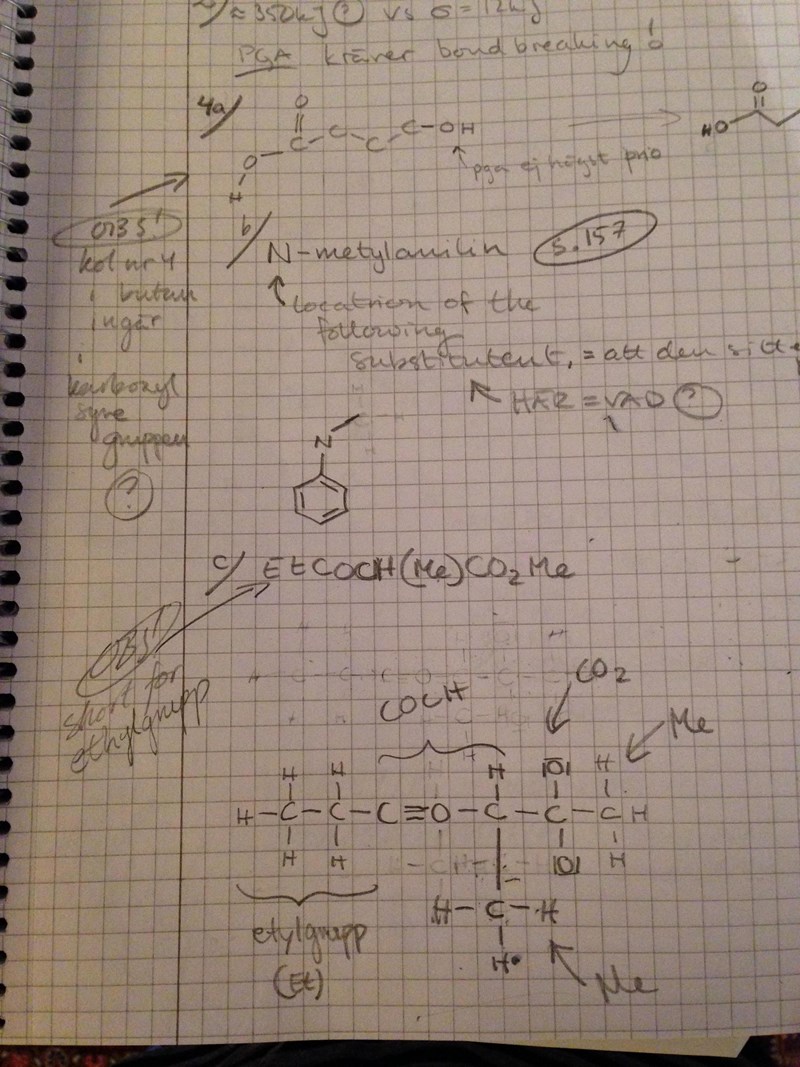 ≈350kJ ? vs σ = 12kJ
PGA kräver bond breaking!
4a/
O
C C C C-OH
O
H
pga ej högst prio
O
HO
OBS!
kol nr 4
i butan
ingår
i
karboxyl
syre
gruppen
?
b/ N-metylanilin s.157
location of the
following
substitutent, = att den sitt
HÄR = VAD ?
N
c/ EtCOCH(Me)CO2Me
OBS!
short for
ethylgrupp
COCH
CO2
Me
H H H |O| H
H-C-C-C≡O-C-C-C H
H H |O| H
H-C-H
H
etylgrupp
(Et)
Me